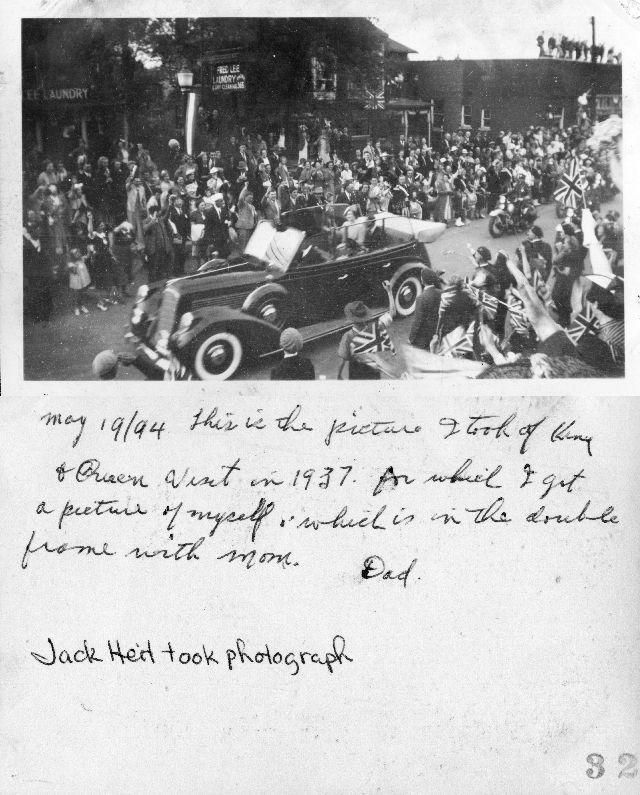 EE LAUNDRY
FRED LEE
LAUNDRY
& DRY CLEANING
May 19/94 This is the picture I took of King
& Queen Visit in 1937. for which I got
a picture of myself, which is in the double
frame with mom. Dad.
Jack Heil took photograph
32